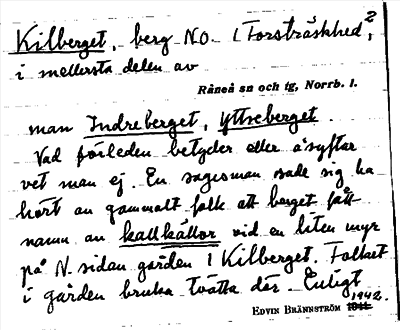 Kilberget, berg NO. i Forsträskhed?,
i mellersta delen av
Råneå sn och tg, Norrb. l.
man Indreberget, Yttreberget.
Vad förleden betyder eller åsyftar
vet man ej. En sagesman sade sig ha
hört av gammalt folk att berget fått
namn av kallkällor vid en liten myr
på N. sidan gården i Kilberget. Folket
i gården bruka tvätta där. Enligt
EDVIN BRÄNNSTRÖM 1942.